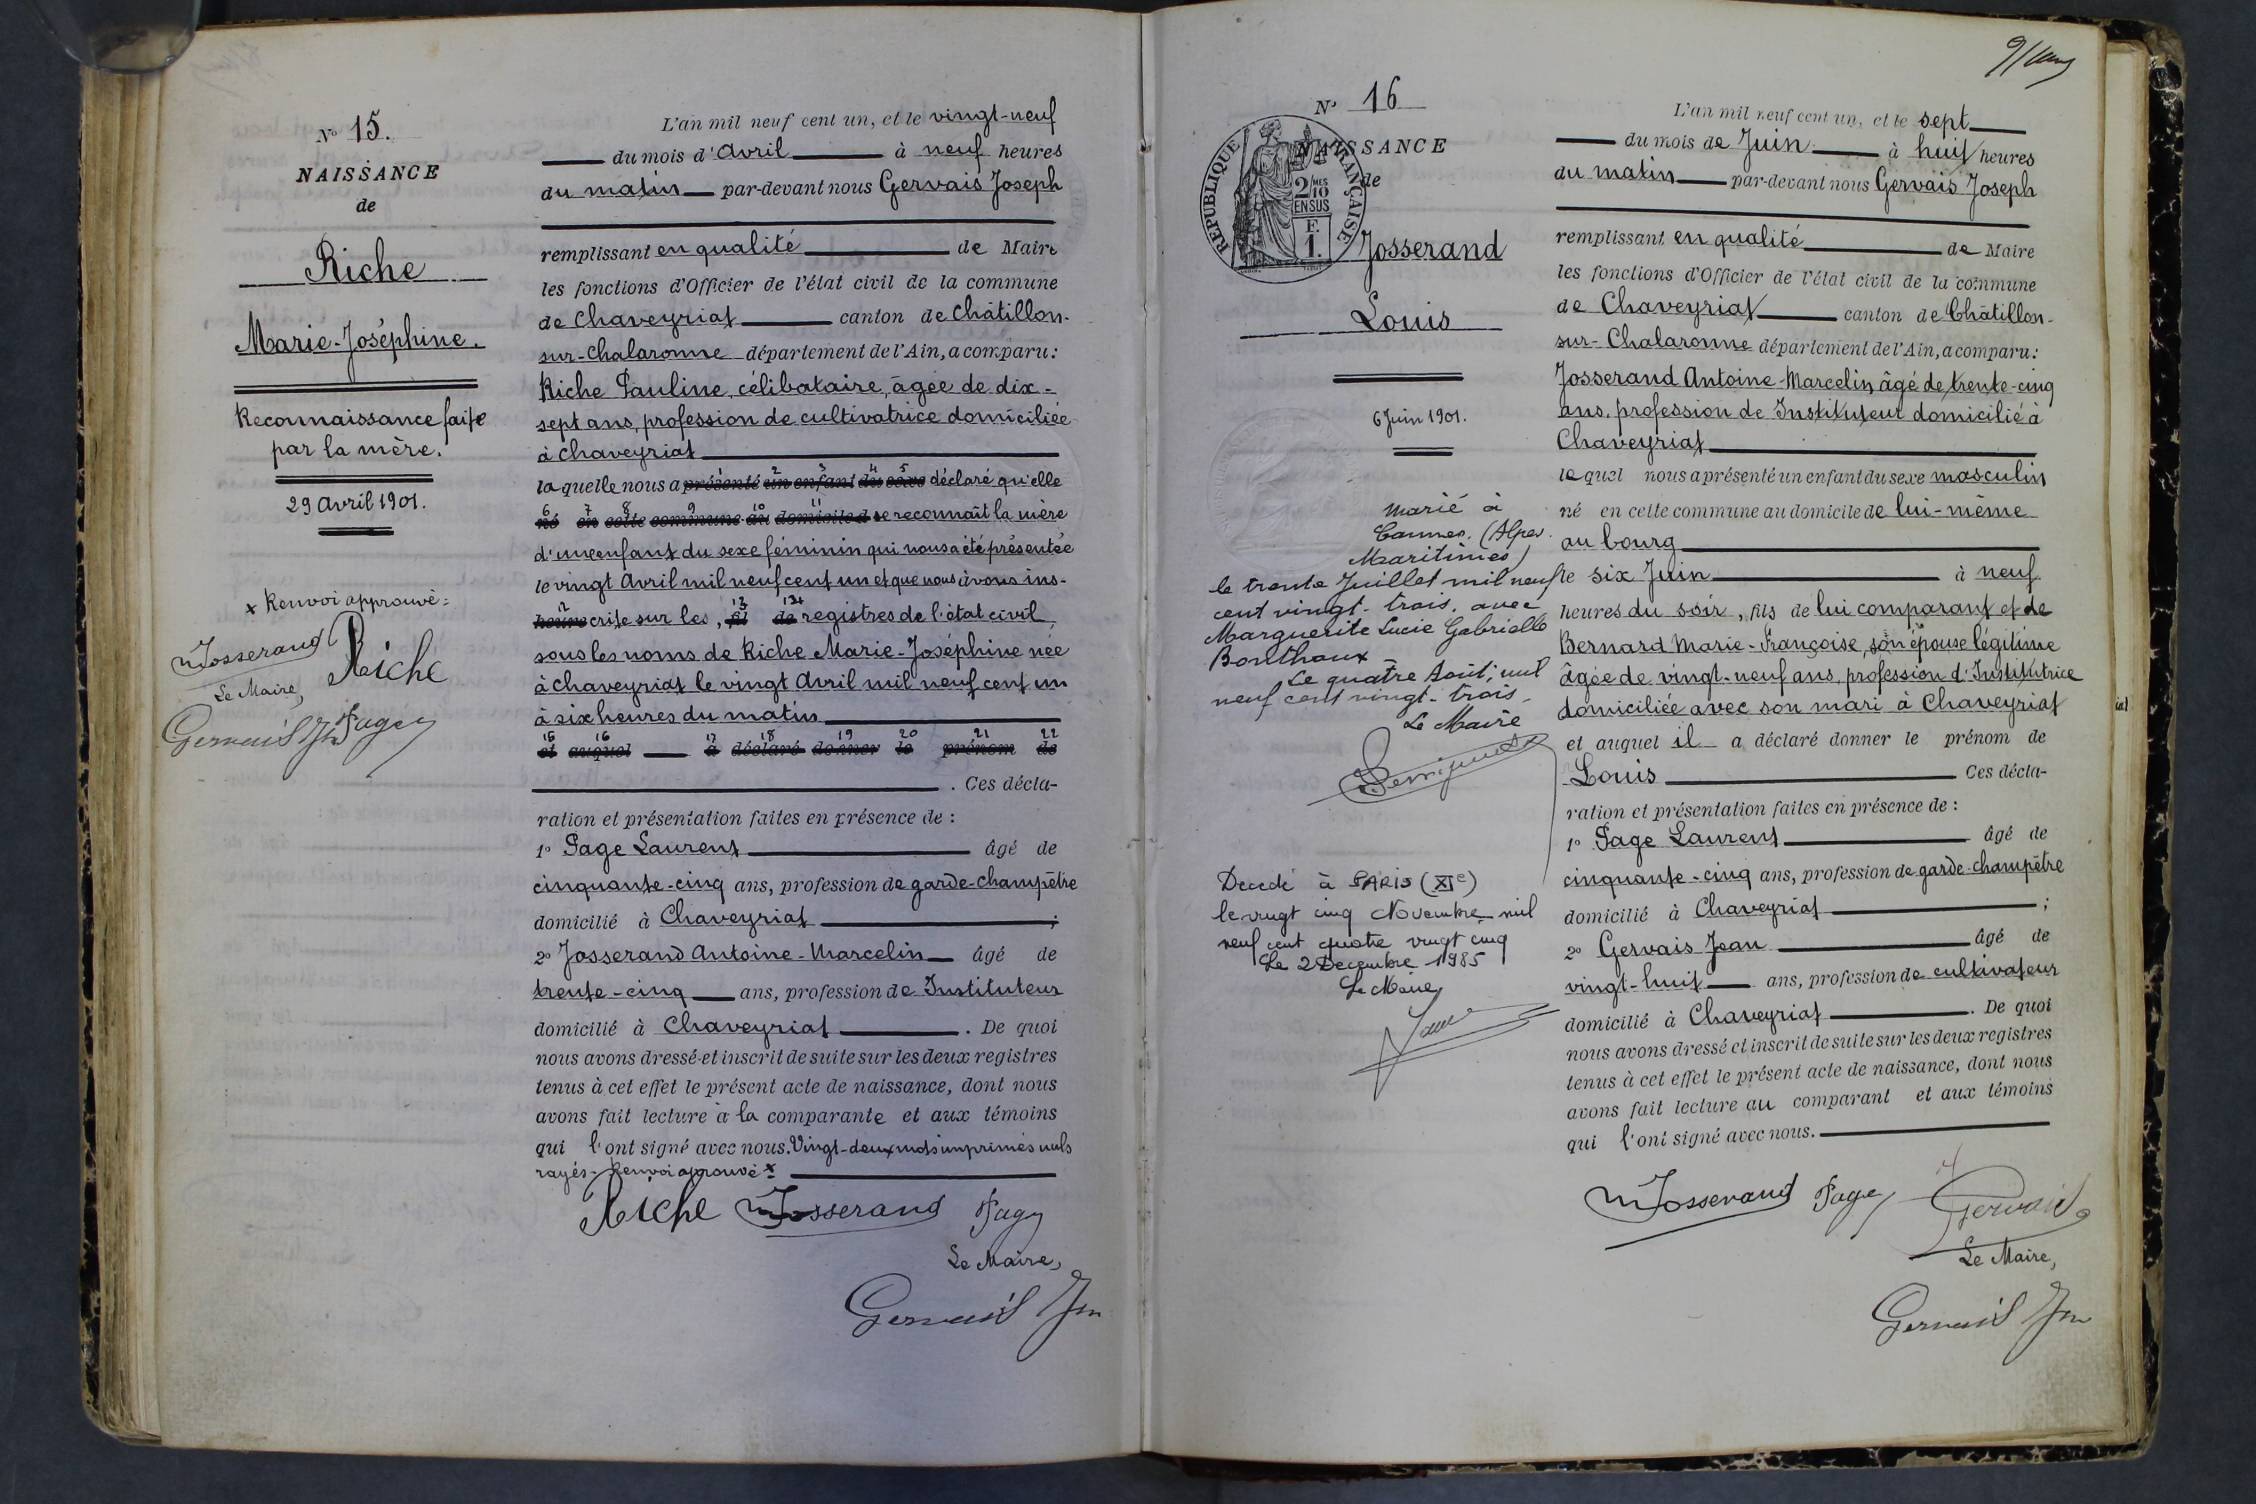 N° 15.
NAISSANCE
de
Riche
Marie-Joséphine.
Reconnaissance faite
par la mère.
29 Avril 1901.
x Renvoi approuvé:
Josserand Riche
Le Maire,
Gervais Jph Page
L'an mil neuf cent un, et le vingt-neuf
du mois d'Avril à neuf heures
du matin par-devant nous Gervais Joseph
remplissant en qualité de Maire
les fonctions d'Officier de l'état civil de la commune
de Chaveyriat canton de Châtillon-
sur-Chalaronne département de l'Ain, a comparu:
Riche Pauline, célibataire, âgée de dix-
sept ans, profession de cultivatrice domiciliée
à Chaveyriat
laquelle nous a présenté un enfant du sexe déclaré qu'elle
né en cette commune au domicile d se reconnaît la mère
d'un enfant du sexe féminin qui nous a été présentée
le vingt Avril mil neuf cent un et que nous avons ins-
heure crite sur les, fil de registres de l'état civil,
sous les noms de Riche Marie-Joséphine née
à Chaveyriat le vingt Avril mil neuf cent un
à six heures du matin
et auquel a déclaré donner le prénom de
. Ces décla-
ration et présentation faites en présence de :
1° Page Laurent âgé de
cinquante-cinq ans, profession de garde-champêtre
domicilié à Chaveyriat ;
2° Josserand Antoine-Marcelin âgé de
trente-cinq ans, profession de Instituteur
domicilié à Chaveyriat . De quoi
nous avons dressé et inscrit de suite sur les deux registres
tenus à cet effet le présent acte de naissance, dont nous
avons fait lecture à la comparante et aux témoins
qui l'ont signé avec nous. Vingt-deux mots imprimés nuls
rayés. Renvoi approuvé x
Riche Josserand Page
Le Maire,
Gervais Jph
N° 16
NAISSANCE
de
REPUBLIQUE FRANÇAISE
2/10MES
EN SUS
F.
1.
Josserand
Louis
6 Juin 1901.
Marié à
Cannes. (Alpes
Maritimes)
le trente Juillet mil neuf
cent vingt-trois, avec
Marguerite Lucie Gabrielle
Bonthoux
Le quatre Août, mil
neuf cent vingt-trois.
Le Maire
Décédé à PARIS (XIe)
le vingt cinq Novembre mil
neuf cent quatre vingt cinq
Le 2 Decembre 1985
Le Maire,
L'an mil neuf cent un, et le sept
du mois de Juin à huit heures
du matin par-devant nous Gervais Joseph
remplissant en qualité de Maire
les fonctions d'Officier de l'état civil de la commune
de Chaveyriat canton de Châtillon-
sur-Chalaronne département de l'Ain, a comparu:
Josserand Antoine-Marcelin, âgé de trente-cinq
ans, profession de Instituteur domicilié à
Chaveyriat
lequel nous a présenté un enfant du sexe masculin
né en cette commune au domicile de lui-même
au bourg
le six Juin à neuf
heures du soir, fils de lui comparant et de
Bernard Marie-Françoise, son épouse légitime
âgée de vingt-neuf ans, profession d'Institutrice
domiciliée avec son mari à Chaveyriat
et auquel il a déclaré donner le prénom de
Louis Ces décla-
ration et présentation faites en présence de :
1° Page Laurent âgé de
cinquante-cinq ans, profession de garde-champêtre
domicilié à Chaveyriat ;
2° Gervais Jean âgé de
vingt-huit ans, profession de cultivateur
domicilié à Chaveyriat . De quoi
nous avons dressé et inscrit de suite sur les deux registres
tenus à cet effet le présent acte de naissance, dont nous
avons fait lecture au comparant et aux témoins
qui l'ont signé avec nous.
Josserand Page Gervais
Le Maire,
Gervais Jph